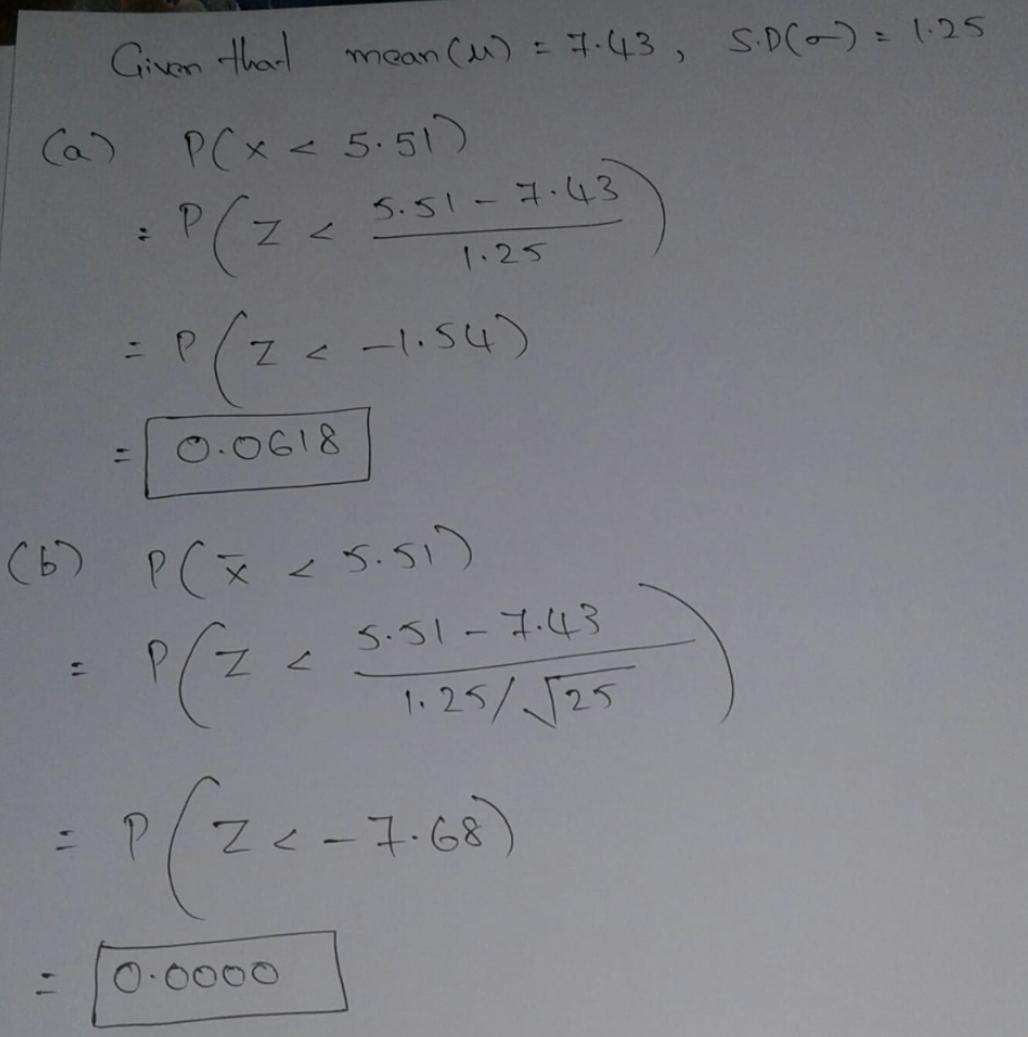 Given that mean(μ) = 7.43, S.D(σ) = 1.25
(a) P(x < 5.51)
= P(Z < (5.51 - 7.43)/1.25)
= P(Z < -1.54)
= 0.0618
(b) P(x̄ < 5.51)
= P(Z < (5.51 - 7.43)/(1.25/√25))
= P(Z < -7.68)
= 0.0000